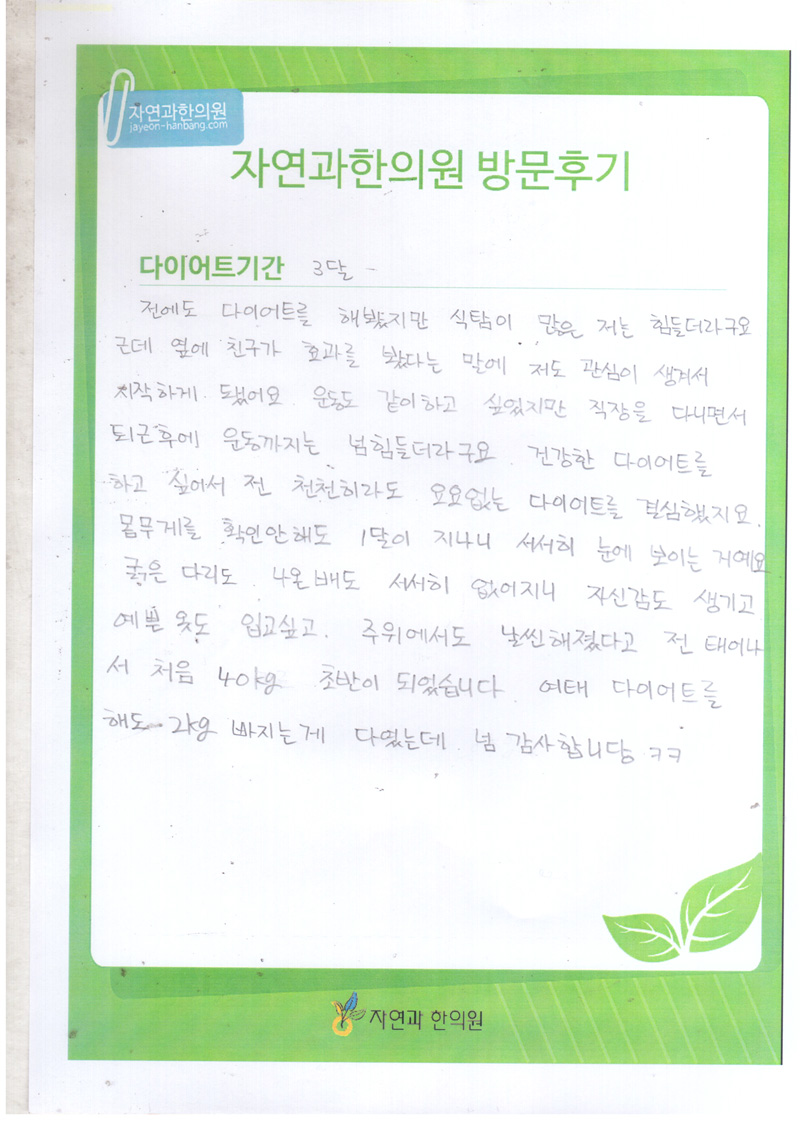 자연과한의원
jayeon-hanbang.com
자연과한의원 방문후기
다이어트기간 3달
전에도 다이어트를 해봤지만 식탐이 많은 저는 힘들더라구요
근데 옆에 친구가 효과를 봤다는 말에 저도 관심이 생겨서
시작하게 됬어요 운동도 같이하고 싶었지만 직장을 다니면서
퇴근후에 운동까지는 넘힘들더라구요 건강한 다이어트를
하고 싶어서 전 천천히라도 요요없는 다이어트를 결심했지요.
몸무게를 확인안해도 1달이 지나니 서서히 눈에 보이는 거예요
굵은 다리도 나온배도 서서히 없어지니 자신감도 생기고
예쁜 옷도 입고싶고. 주위에서도 날씬해졌다고 전 태어나
서 처음 40kg 초반이 되었습니다 여태 다이어트를
해도 2kg 빠지는게 다였는데 넘 감사합니당 ㅋㅋ
자연과 한의원